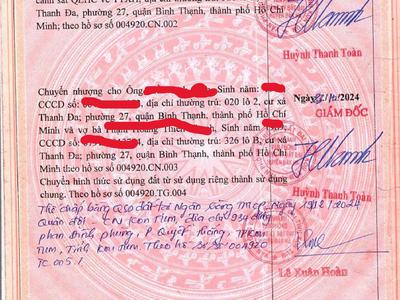 Thanh Đa, phường 27, quận Bình Thạnh, thành phố Hồ Chí
Minh; theo hồ sơ số 004920.CN.002
Huỳnh Thanh Toàn
Chuyển nhượng cho Ông Sinh năm:
CCCD số: địa chỉ thường trú: 020 lô 2, cư xá
Thanh Đa; phường 27, quận Bình Thạnh, thành phố Hồ Chí
Minh và vợ bà Sinh năm
CCCD địa chỉ thường trú: 326 lô B, cư
Thanh Đa; phường 27, quận Bình Thạnh, thành phố Hồ Chí
Minh; theo hồ sơ số 004920.CN.003
Chuyển hình thức sử dụng đất từ sử dụng riêng thành sử dụng
chung. Theo hồ sơ số 004920.TG.004
Ngày 2024
GIÁM ĐỐC
Huỳnh Thanh Toàn
Thế chấp bằng QSD đất tại Ngân hàng TMCP Ngày 2024
Quân đội - CN Kon Tum, địa chỉ 934 đường
phan Đình phùng, P Quyết Thắng, TP Kon
Tum, Tỉnh Kon Tum Theo hồ sơ số 004920
TC.005
Lê Xuân Hoàn